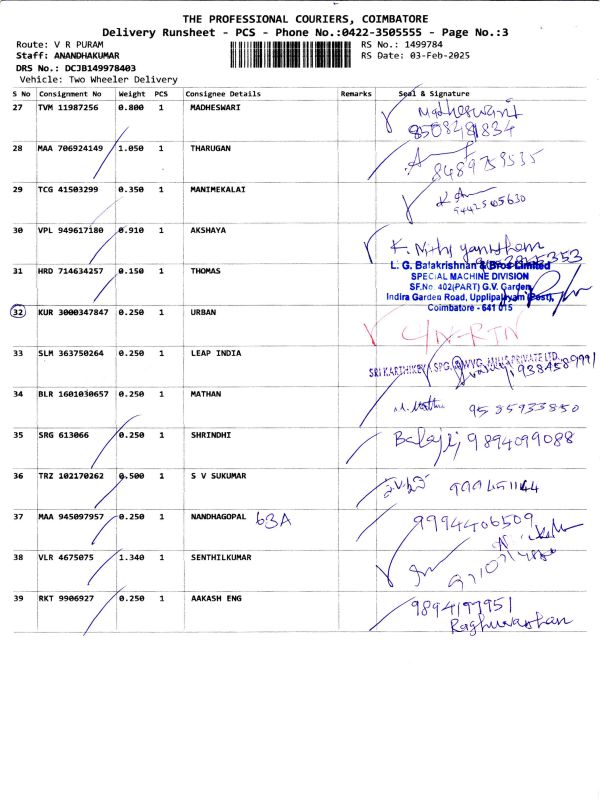 THE PROFESSIONAL COURIERS, COIMBATORE
Delivery Runsheet - PCS - Phone No.:0422-3505555 - Page No.:3
Route: V R PURAM RS No.: 1499784
Staff: ANANDHAKUMAR RS Date: 03-Feb-2025
DRS No.: DCJB149978403
Vehicle: Two Wheeler Delivery
S No Consignment No Weight PCS Consignee Details Remarks Seal & Signature
27 TVM 11987256 0.800 1 MADHESWARI Madheswari
8508481834
28 MAA 706924149 1.050 1 THARUGAN
8489759535
29 TCG 41503299 0.350 1 MANIMEKALAI
9442505630
30 VPL 949617180 0.910 1 AKSHAYA
L. G. Balakrishnan & Bros Limited
31 HRD 714634257 0.150 1 THOMAS SPECIAL MACHINE DIVISION
SF.No. 402(PART) G.V. Garden,
Indira Garden Road, Upplipalayam (Post),
Coimbatore - 641 015
32 KUR 3000347847 0.250 1 URBAN
33 SLM 363750264 0.250 1 LEAP INDIA SRI KARTHIKEYA SPG. & WVG. MILLS PRIVATE LTD.
9384589991
34 BLR 1601030657 0.250 1 MATHAN
9585933850
35 SRG 613066 0.250 1 SHRINDHI Balaji 9894099088
36 TRZ 102170262 0.500 1 S V SUKUMAR
37 MAA 945097957 0.250 1 NANDHAGOPAL 63A 9994406509
38 VLR 4675075 1.340 1 SENTHILKUMAR
39 RKT 9906927 0.250 1 AAKASH ENG 9894197951
Raghuvardhan